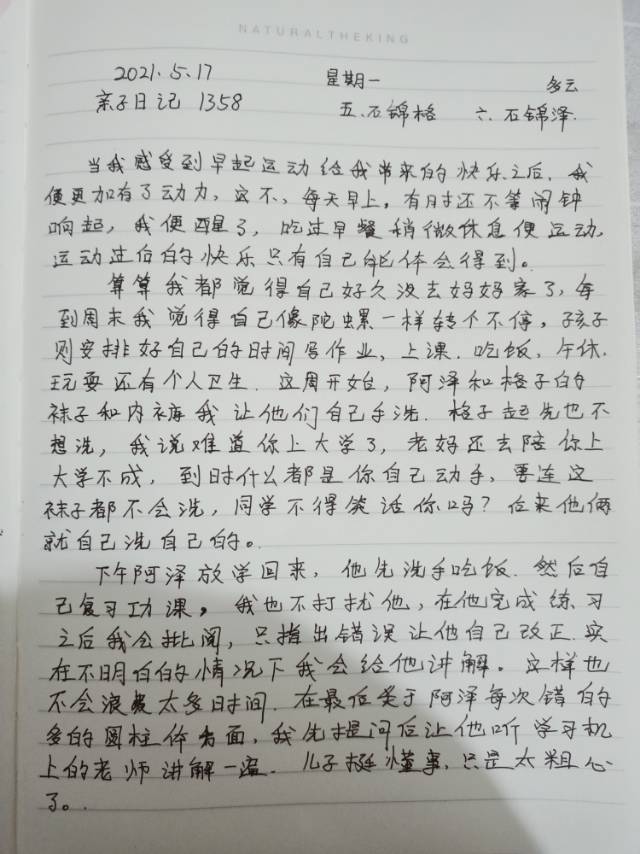 NATURALTHEKING
2021.5.17 星期一 多云
亲子日记 1358 五.石锦格 六.石锦泽.
当我感受到早起运动给我带来的快乐之后，我
便更加有了动力，这不，每天早上，有时还不等闹钟
响起，我便醒了，吃过早餐稍微休息便运动，
运动过后的快乐只有自己能体会得到。
算算我都觉得自己好久没去妈妈家了，每
到周末我觉得自己像陀螺一样转个不停，孩子
则安排好自己的时间写作业，上课．吃饭，午休．
玩耍还有个人卫生．这周开始，阿泽和格子的
袜子和内裤我让他们自己手洗．格子起先也不
想洗，我说难道你上大学了，老妈还去陪你上
大学不成，到时什么都是你自己动手，要连这
袜子都不会洗，同学不得笑话你吗？后来他俩
就自己洗自己的。
下午阿泽放学回来，他先洗手吃饭．然后自
己复习功课，我也不打扰他，在他完成练习
之后我会批阅，只指出错误让他自己改正．实
在不明白的情况下我会给他讲解。这样也
不会浪费太多时间．在最后关于阿泽每次错的
多的圆柱体方面，我先提问后让他听学习机
上的老师讲解一遍．儿子挺懂事，只是太粗心
了。